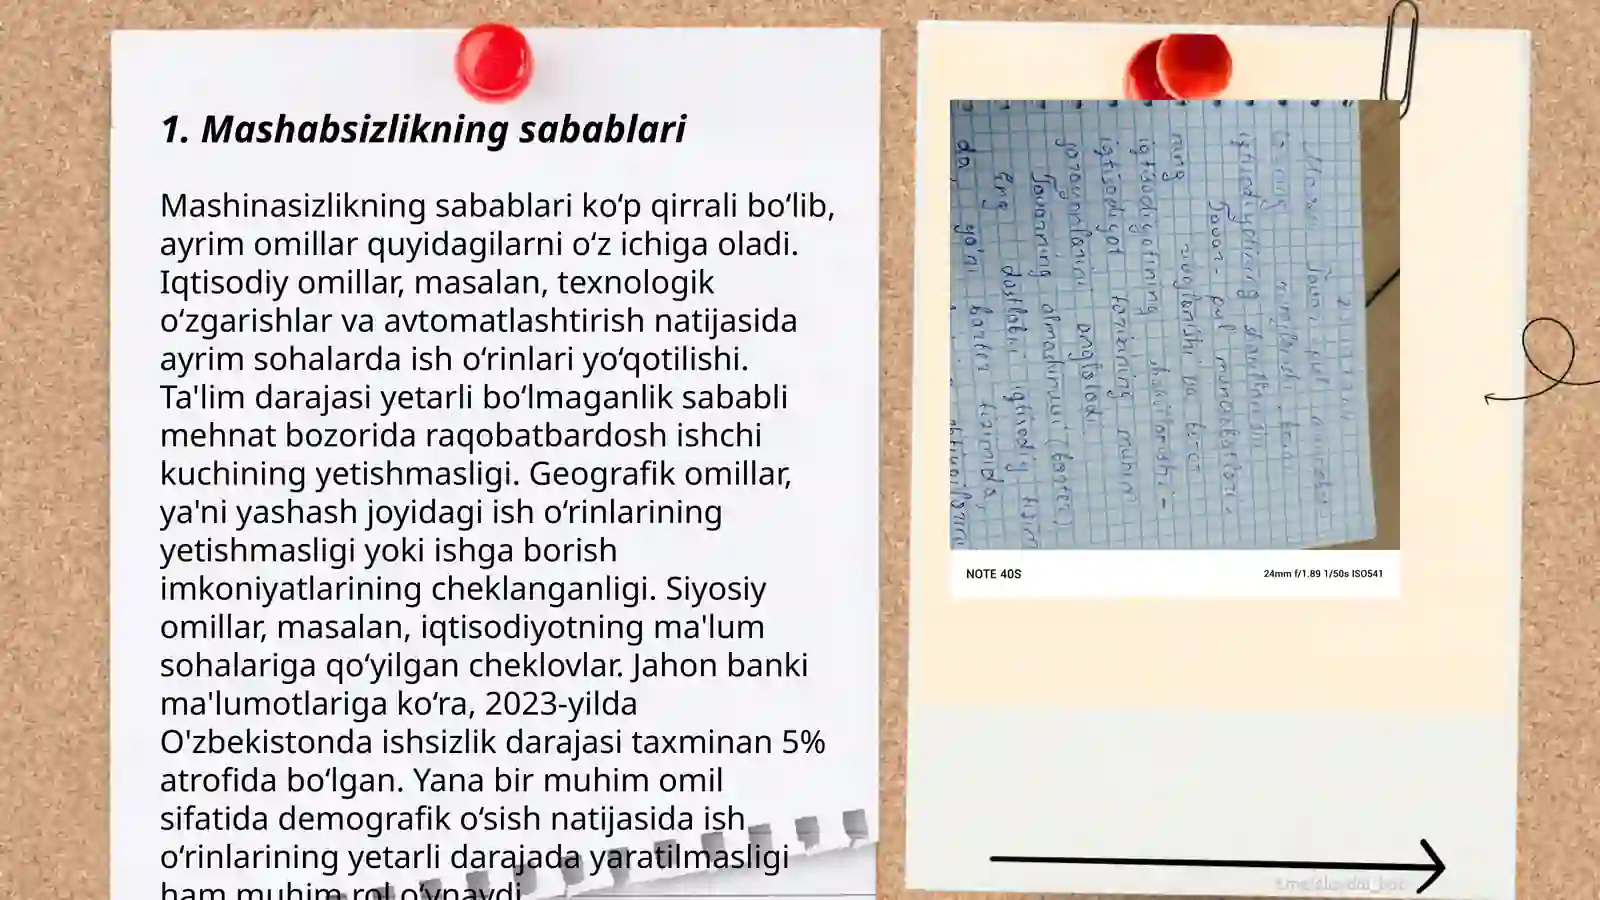 1. Mashabsizlikning sabablari
Mashinasizlikning sabablari ko‘p qirrali bo‘lib,
ayrim omillar quyidagilarni o‘z ichiga oladi.
Iqtisodiy omillar, masalan, texnologik
o‘zgarishlar va avtomatlashtirish natijasida
ayrim sohalarda ish o‘rinlari yo‘qotilishi.
Ta'lim darajasi yetarli bo‘lmaganlik sababli
mehnat bozorida raqobatbardosh ishchi
kuchining yetishmasligi. Geografik omillar,
ya'ni yashash joyidagi ish o‘rinlarining
yetishmasligi yoki ishga borish
imkoniyatlarining cheklanganligi. Siyosiy
omillar, masalan, iqtisodiyotning ma'lum
sohalariga qo‘yilgan cheklovlar. Jahon banki
ma'lumotlariga ko‘ra, 2023-yilda
O'zbekistonda ishsizlik darajasi taxminan 5%
atrofida bo‘lgan. Yana bir muhim omil
sifatida demografik o‘sish natijasida ish
o‘rinlarining yetarli darajada yaratilmasligi
ham muhim rol o‘ynaydi.
iqtisodiyotining
Tovar - pul munosabatlari
ning rivojlanishi va
iqtisodiyotining shakllanishi -
iqtisodiyot tarixining muhim
jarayonlarini anglatadi
Tovarning almashinuvi (barter)
Eng dastlabki iqtisodiy tizim
da, ya'ni barter tizimida,
NOTE 40S
24mm f/1.89 1/50s ISO541